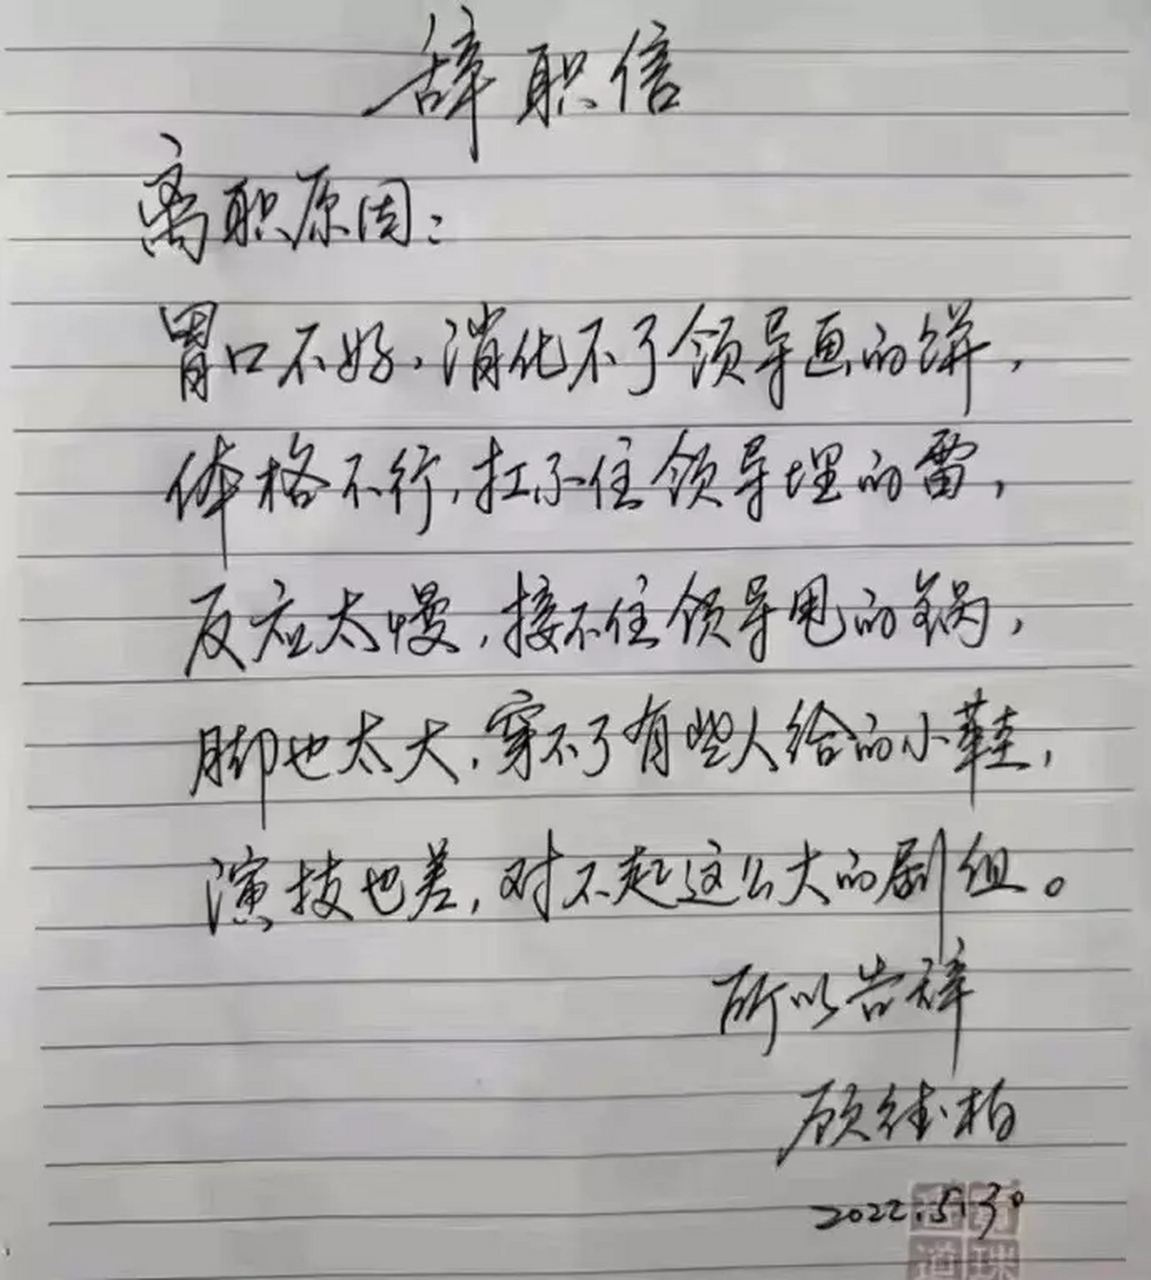 辞职信
离职原因：
胃口不好，消化不了领导画的饼，
体格不行，扛不住领导埋的雷，
反应太慢，接不住领导甩的锅，
脚也太大，穿不了有些人给的小鞋，
演技也差，对不起这么大的剧组。
所以告辞
顾德柏
2022.5.30
道 珠